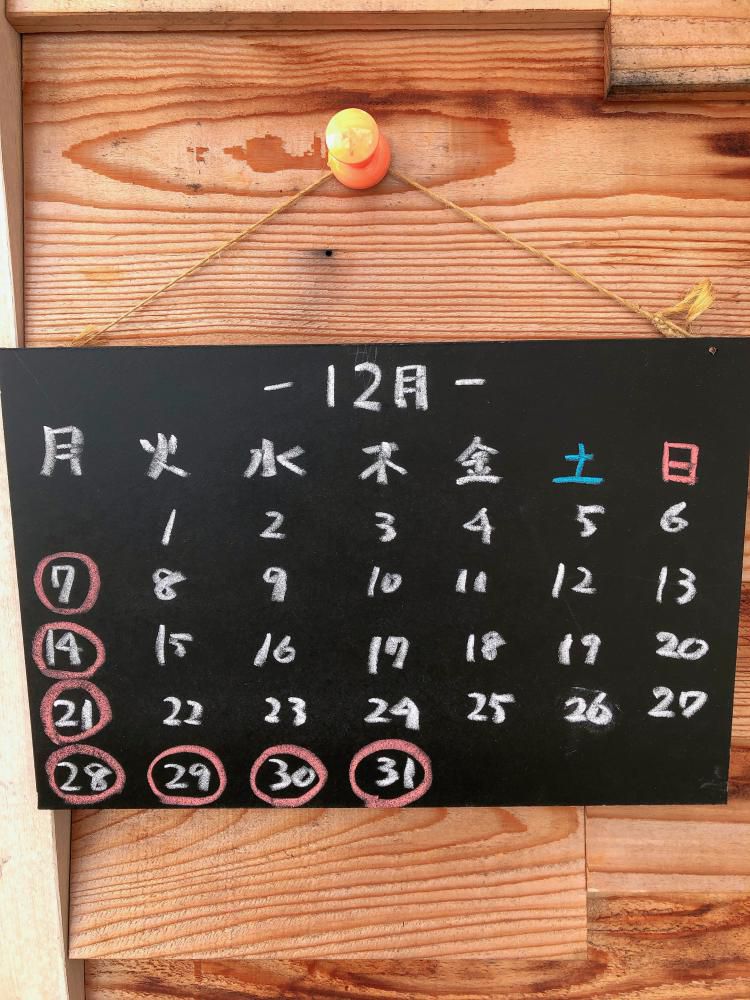 - 12月 -
月 火 水 木 金 土 日
1 2 3 4 5 6
7 8 9 10 11 12 13
14 15 16 17 18 19 20
21 22 23 24 25 26 27
28 29 30 31